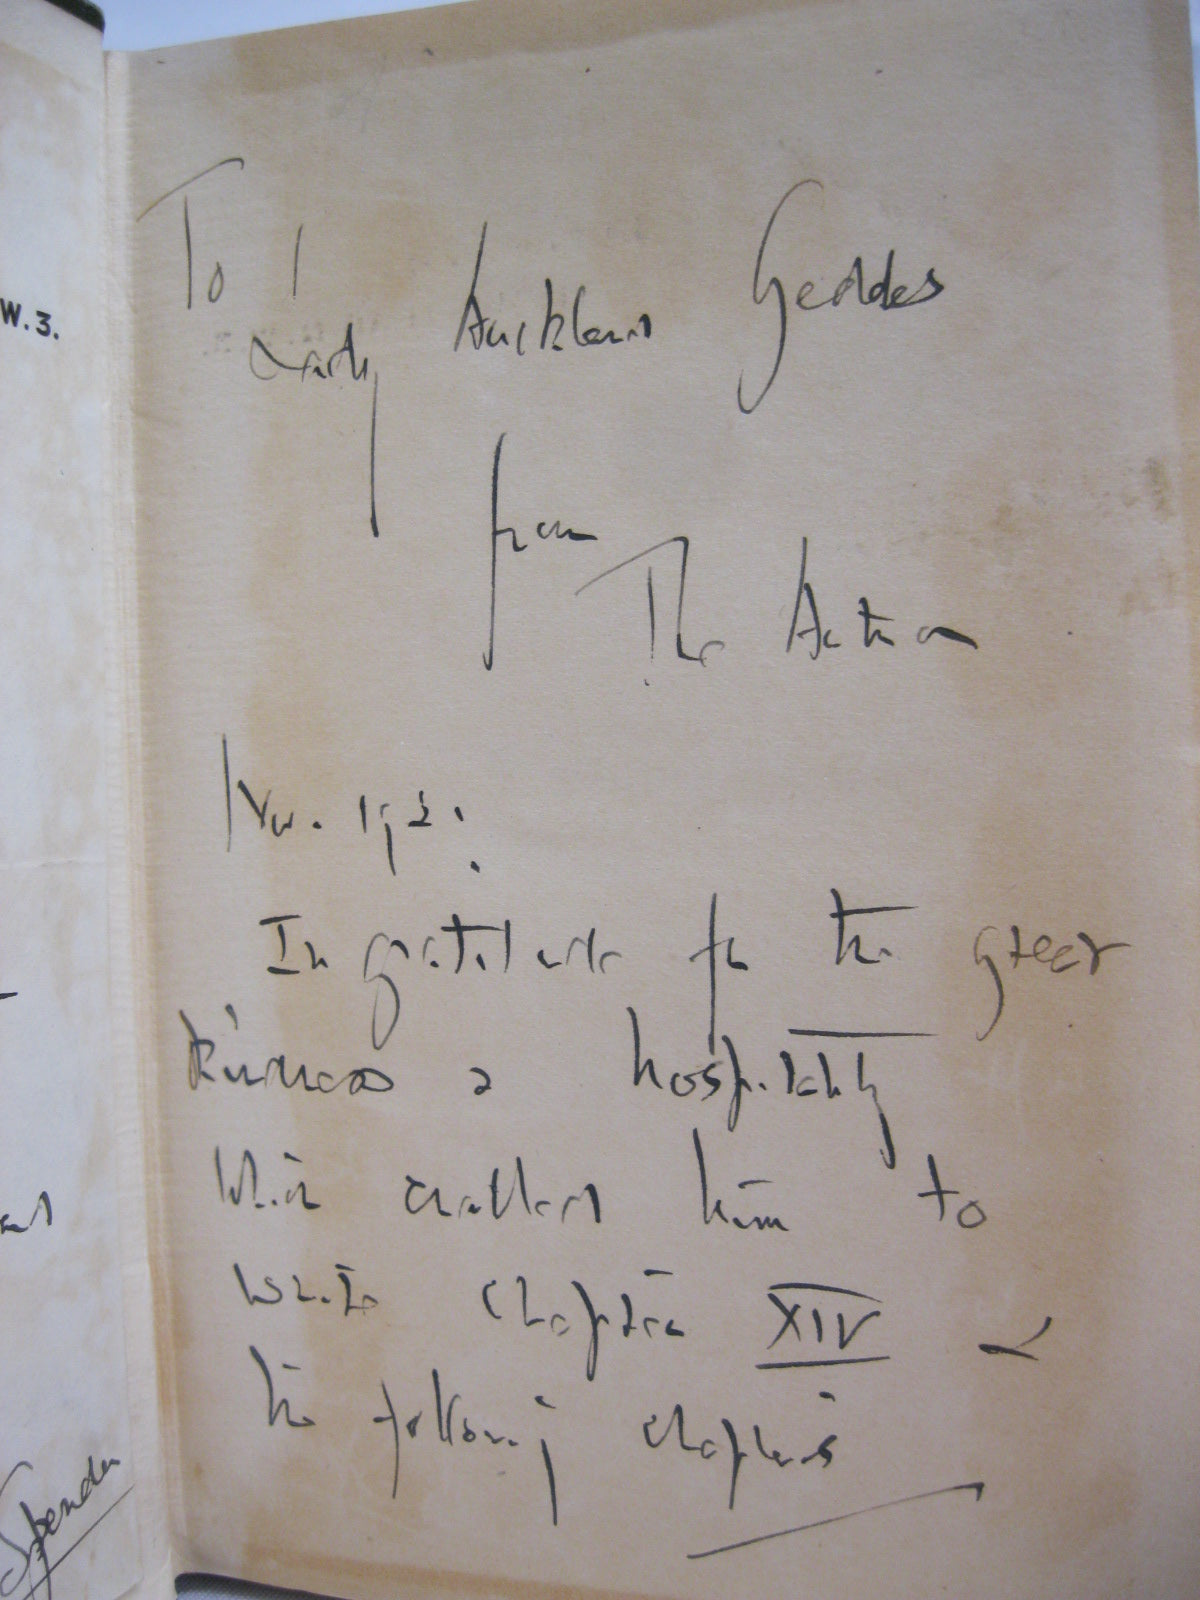 W.3.
To
Lady Auckland Geddes
from
The Author
Nov. 192
In gratitude for the great
kindness & hospitality
which enabled him to
write Chapter XIV &
the following chapters
Spender